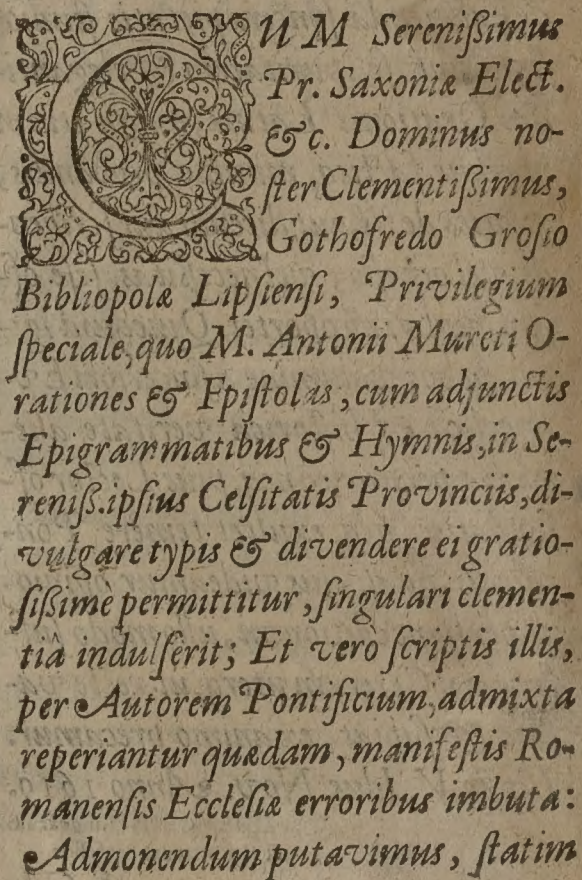 CUM Serenißimus
Pr. Saxoniæ Elect.
&c. Dominus no-
ster Clementißimus,
Gothofredo Grosio
Bibliopolæ Lipsiensi, Privilegium
speciale, quo M. Antonii Mureti O-
rationes & Epistolas, cum adjunctis
Epigrammatibus & Hymnis, in Se-
reniß. ipsius Celsitatis Provinciis, di-
vulgare typis & divendere ei gratio-
sißimè permittitur, singulari clemen-
tiâ indulserit; Et verò scriptis illis,
per Autorem Pontificium, admixta
reperiantur quædam, manifestis Ro-
manensis Ecclesiæ erroribus imbuta:
Admonendum putavimus, statim